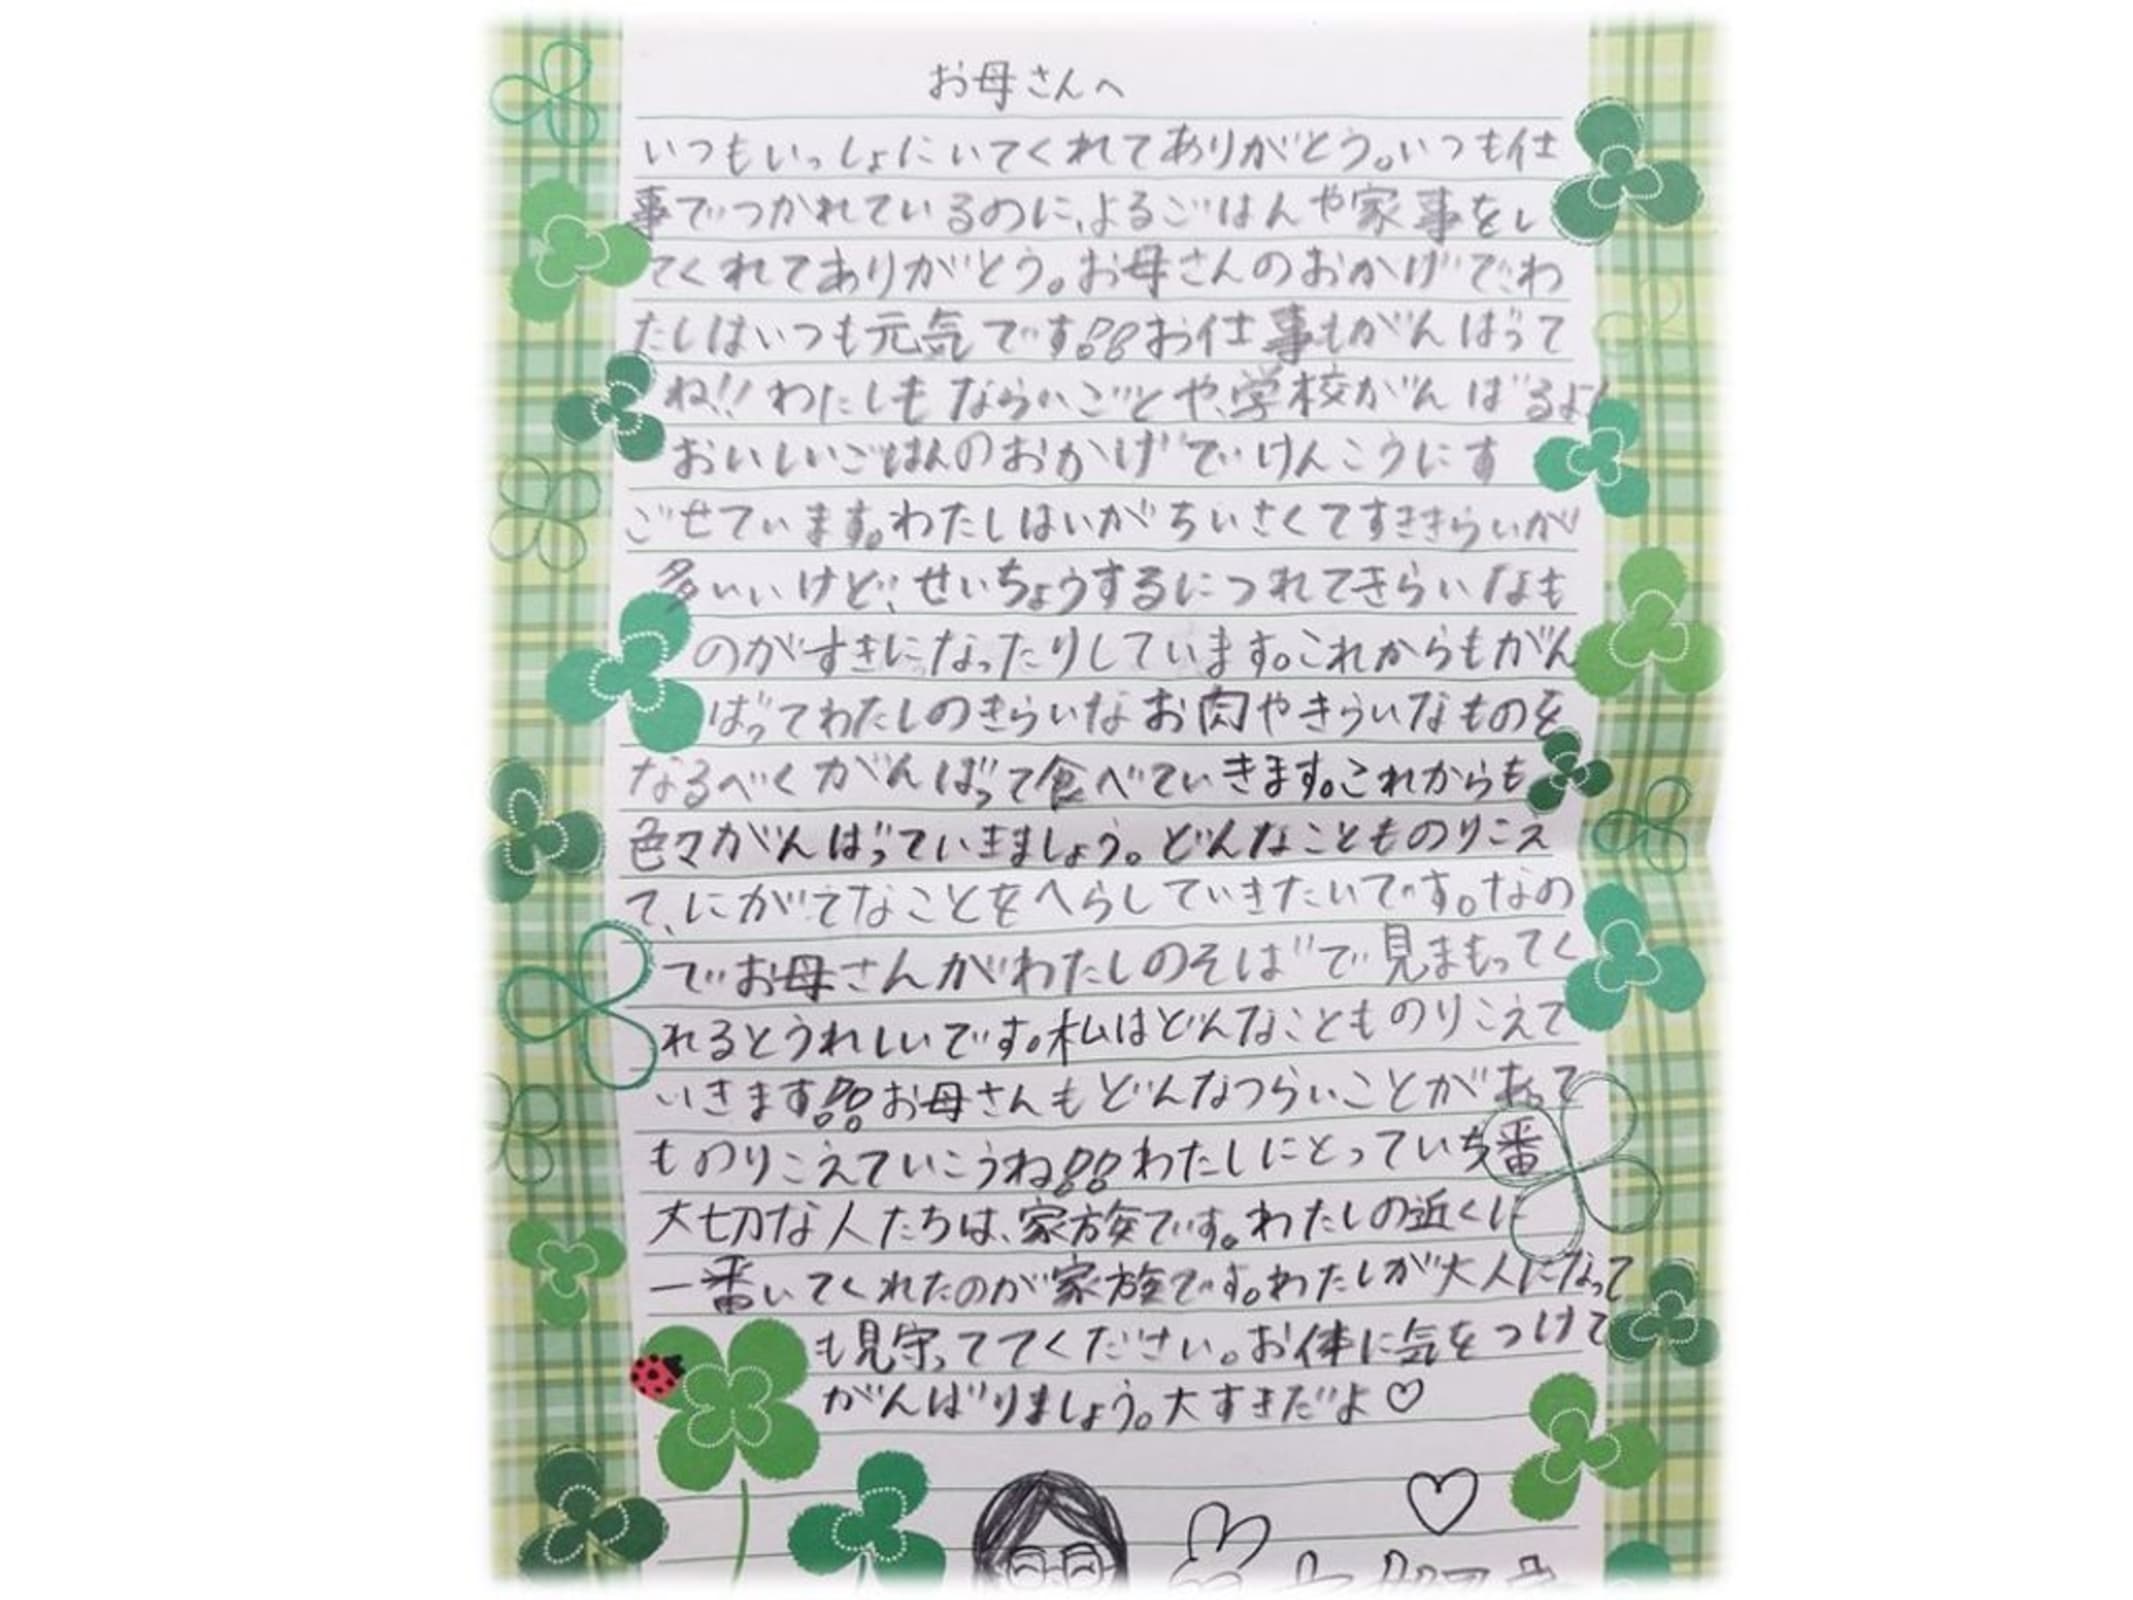 お母さんへ
いつもいっしょにいてくれてありがとう。いつも仕
事でつかれているのに、よるごはんや家事をし
てくれてありがとう。お母さんのおかげで、わ
たしはいつも元気です!!お仕事もがんばって
ね!!わたしもならいごとや、学校がんばるよ!
おいしいごはんのおかげでけんこうにす
ごせています。わたしはいがちいさくてすききらいが
多いいけど、せいちょうするにつれてきらいなも
のがすきになったりしています。これからもがん
ばってわたしのきらいなお肉やきらいなものを
なるべくがんばって食べていきます。これからも
色々がんばっていきましょう。どんなこともののりこえ
て、にがてなことをへらしていきたいです。なの
でお母さんがわたしのそばで見まもってく
れるとうれしいです。私はどんなことものりこえて
いきます!!お母さんもどんなつらいことがあって
ものりこえていこうね!!わたしにとっていち番
大切な人たちは、家族です。わたしの近くに
一番いてくれたのが家族です。わたしが大人になって
も見守っててください。お体に気をつけて
がんばりましょう。大すきだよ♡